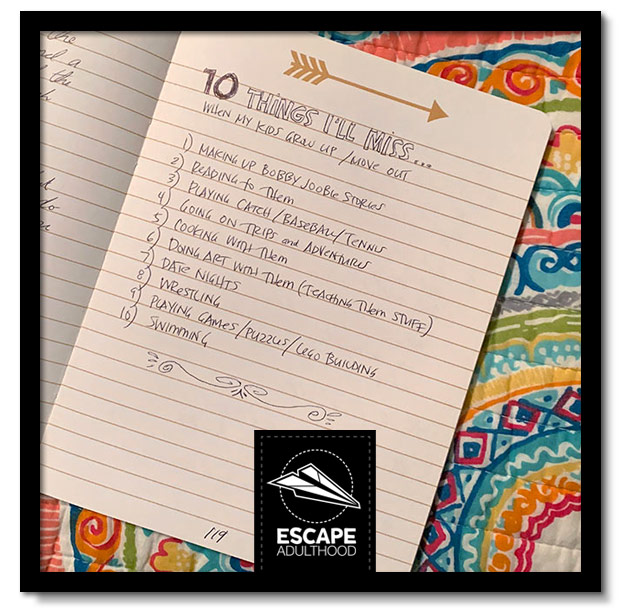 10 THINGS I'LL MISS...
WHEN MY KIDS GROW UP / MOVE OUT
1) MAKING UP BOBBY JOOBIE STORIES
2) READING to Them
3) PLAYING CATCH / BASEBALL / TENNIS
4) GOING ON TRIPS and ADVENTURES
5) COOKING WITH Them
6) DOING ART WITH Them (TEACHING Them STUFF)
7) DATE NIGHTS
8) WRESTLING
9) PLAYING GAMES / PUZZLES / LEGO BUILDING
10) SWIMMING
119
ESCAPE
ADULTHOOD